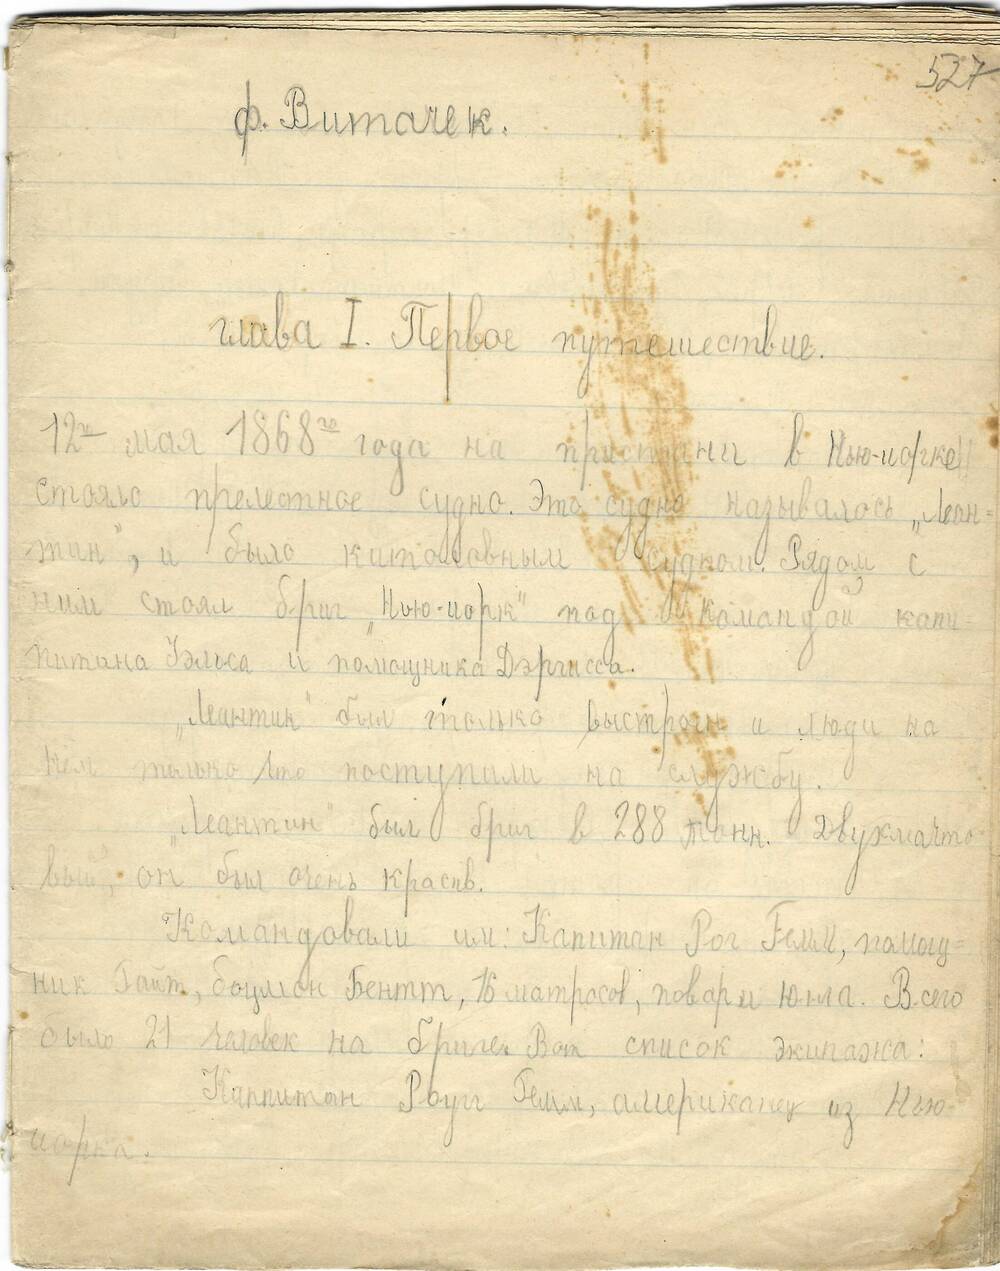 527
Ф. Витачек.
глава I. Первое путешествие.
12го мая 1868го года на пристани в Нью-иорке
стояло прелестное судно. Это судно называлось „Леан-
тин", и было китоловным судном. Рядом с
ним стоял бриг „Нью-иорк" под командой капи-
питана Уэльса и помощника Дэргисса.
„Леантин" был только выстроен и люди на
нем только что поступили на службу.
„Леантин" был бриг в 288 тонн. Двухмачто
вый, он был очень красив.
Командовали им: Капитан Рог Гемм, помощ-
ник Гайт, боцман Бентт, 16 матросов, повар и юнга. Всего
было 21 человек на бриге. Вот список экипажа:
Каппитан Роуг Гемм, американец из Нью-
иорка.